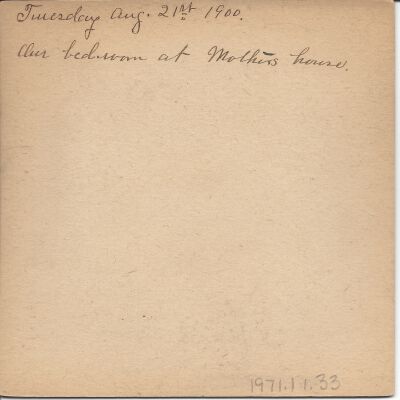 Tuesday Aug. 21st 1900.
Our bed-room at Mother's house.
1971.11.33